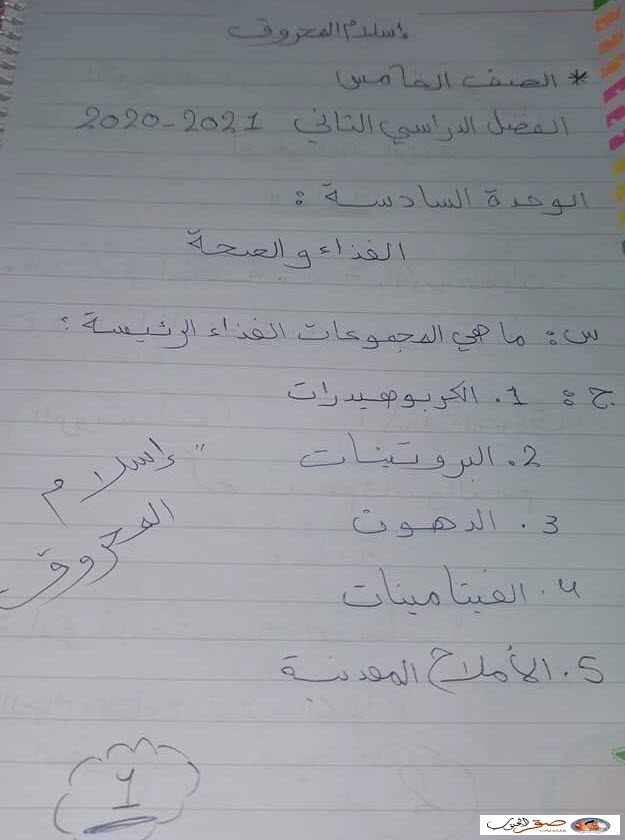 إسلام المعروف
* الصف الخامس
الفصل الدراسي الثاني 2021-2020
الوحدة السادسة :
الغذاء والصحة
س: ما هي المجموعات الغذاء الرئيسة :
ج: 1. الكربوهيدرات
2. البروتينات
3. الدهون
4. الفيتامينات
5. الأملاح المعدنية
" إسلام
المعروف
1
صقر الجنوب